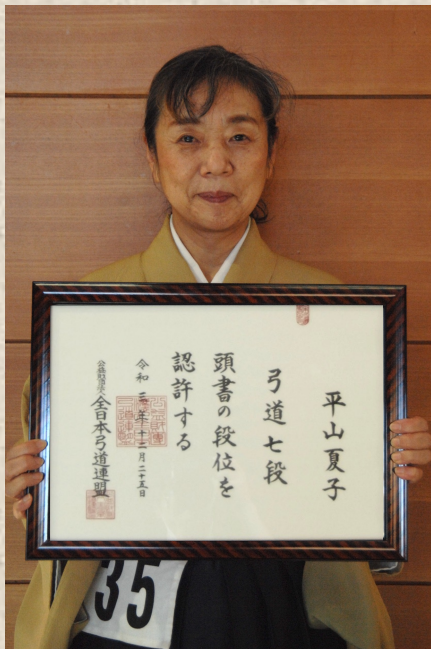 平山夏子
弓道 七段
頭書の段位を
認許する
令和三年十二月二十五日
公益財団法人全日本弓道連盟
35